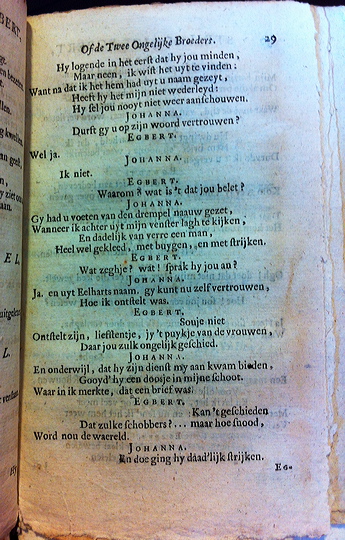 Of de Twee Ongelijke Broeders. 29
Hy logende in het eerst dat hy jou minden,
Maar neen, ik wist het uyt te vinden:
Want na dat ik het hem had uyt u naam gezeyt,
Heeft hy het mijn niet wederleyd:
Hy sel jou nooyt niet weer aanschouwen.
JOHANNA.
Durft gy u op zijn woord vertrouwen?
EGBERT.
Wel ja.
JOHANNA.
Ik niet.
EGBERT.
Waarom? wat is 't dat jou belet?
JOHANNA.
Gy had u voeten van den drempel naauw gezet,
Wanneer ik achter uyt mijn venster lagh te kijken,
En dadelijk van verre een man,
Heel wel gekleed, met buygen, en met strijken.
EGBERT.
Wat zeghje? wat! sprak hy jou an?
JOHANNA.
Ja. en uyt Eelharts naam. gy kunt nu zelf vertrouwen,
Hoe ik ontstelt was.
EGBERT,
Souje niet
Ontstelt zijn, liefstentje, jy 't puykje van de vrouwen,
Daar jou zulk ongelijk geschied.
JOHANNA.
En onderwijl, dat hy zijn dienst my aan kwam bieden,
Gooyd' hy een doosje in mijne schoot.
Waar in ik merkte, dat een brief was.
EGBERT,
Kan 't geschieden
Dat zulke schobbers?... maar hoe snood,
Word nou de waereld.
JOHANNA.
En doe ging hy daad'lijk strijken.
EG-